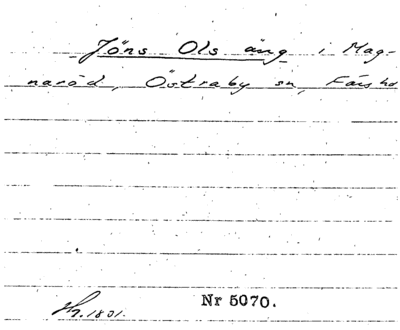 Jöns Ols äng i Mag-
naröd, Östraby sn, Färs hd
Hg. 1801. Nr 5070.